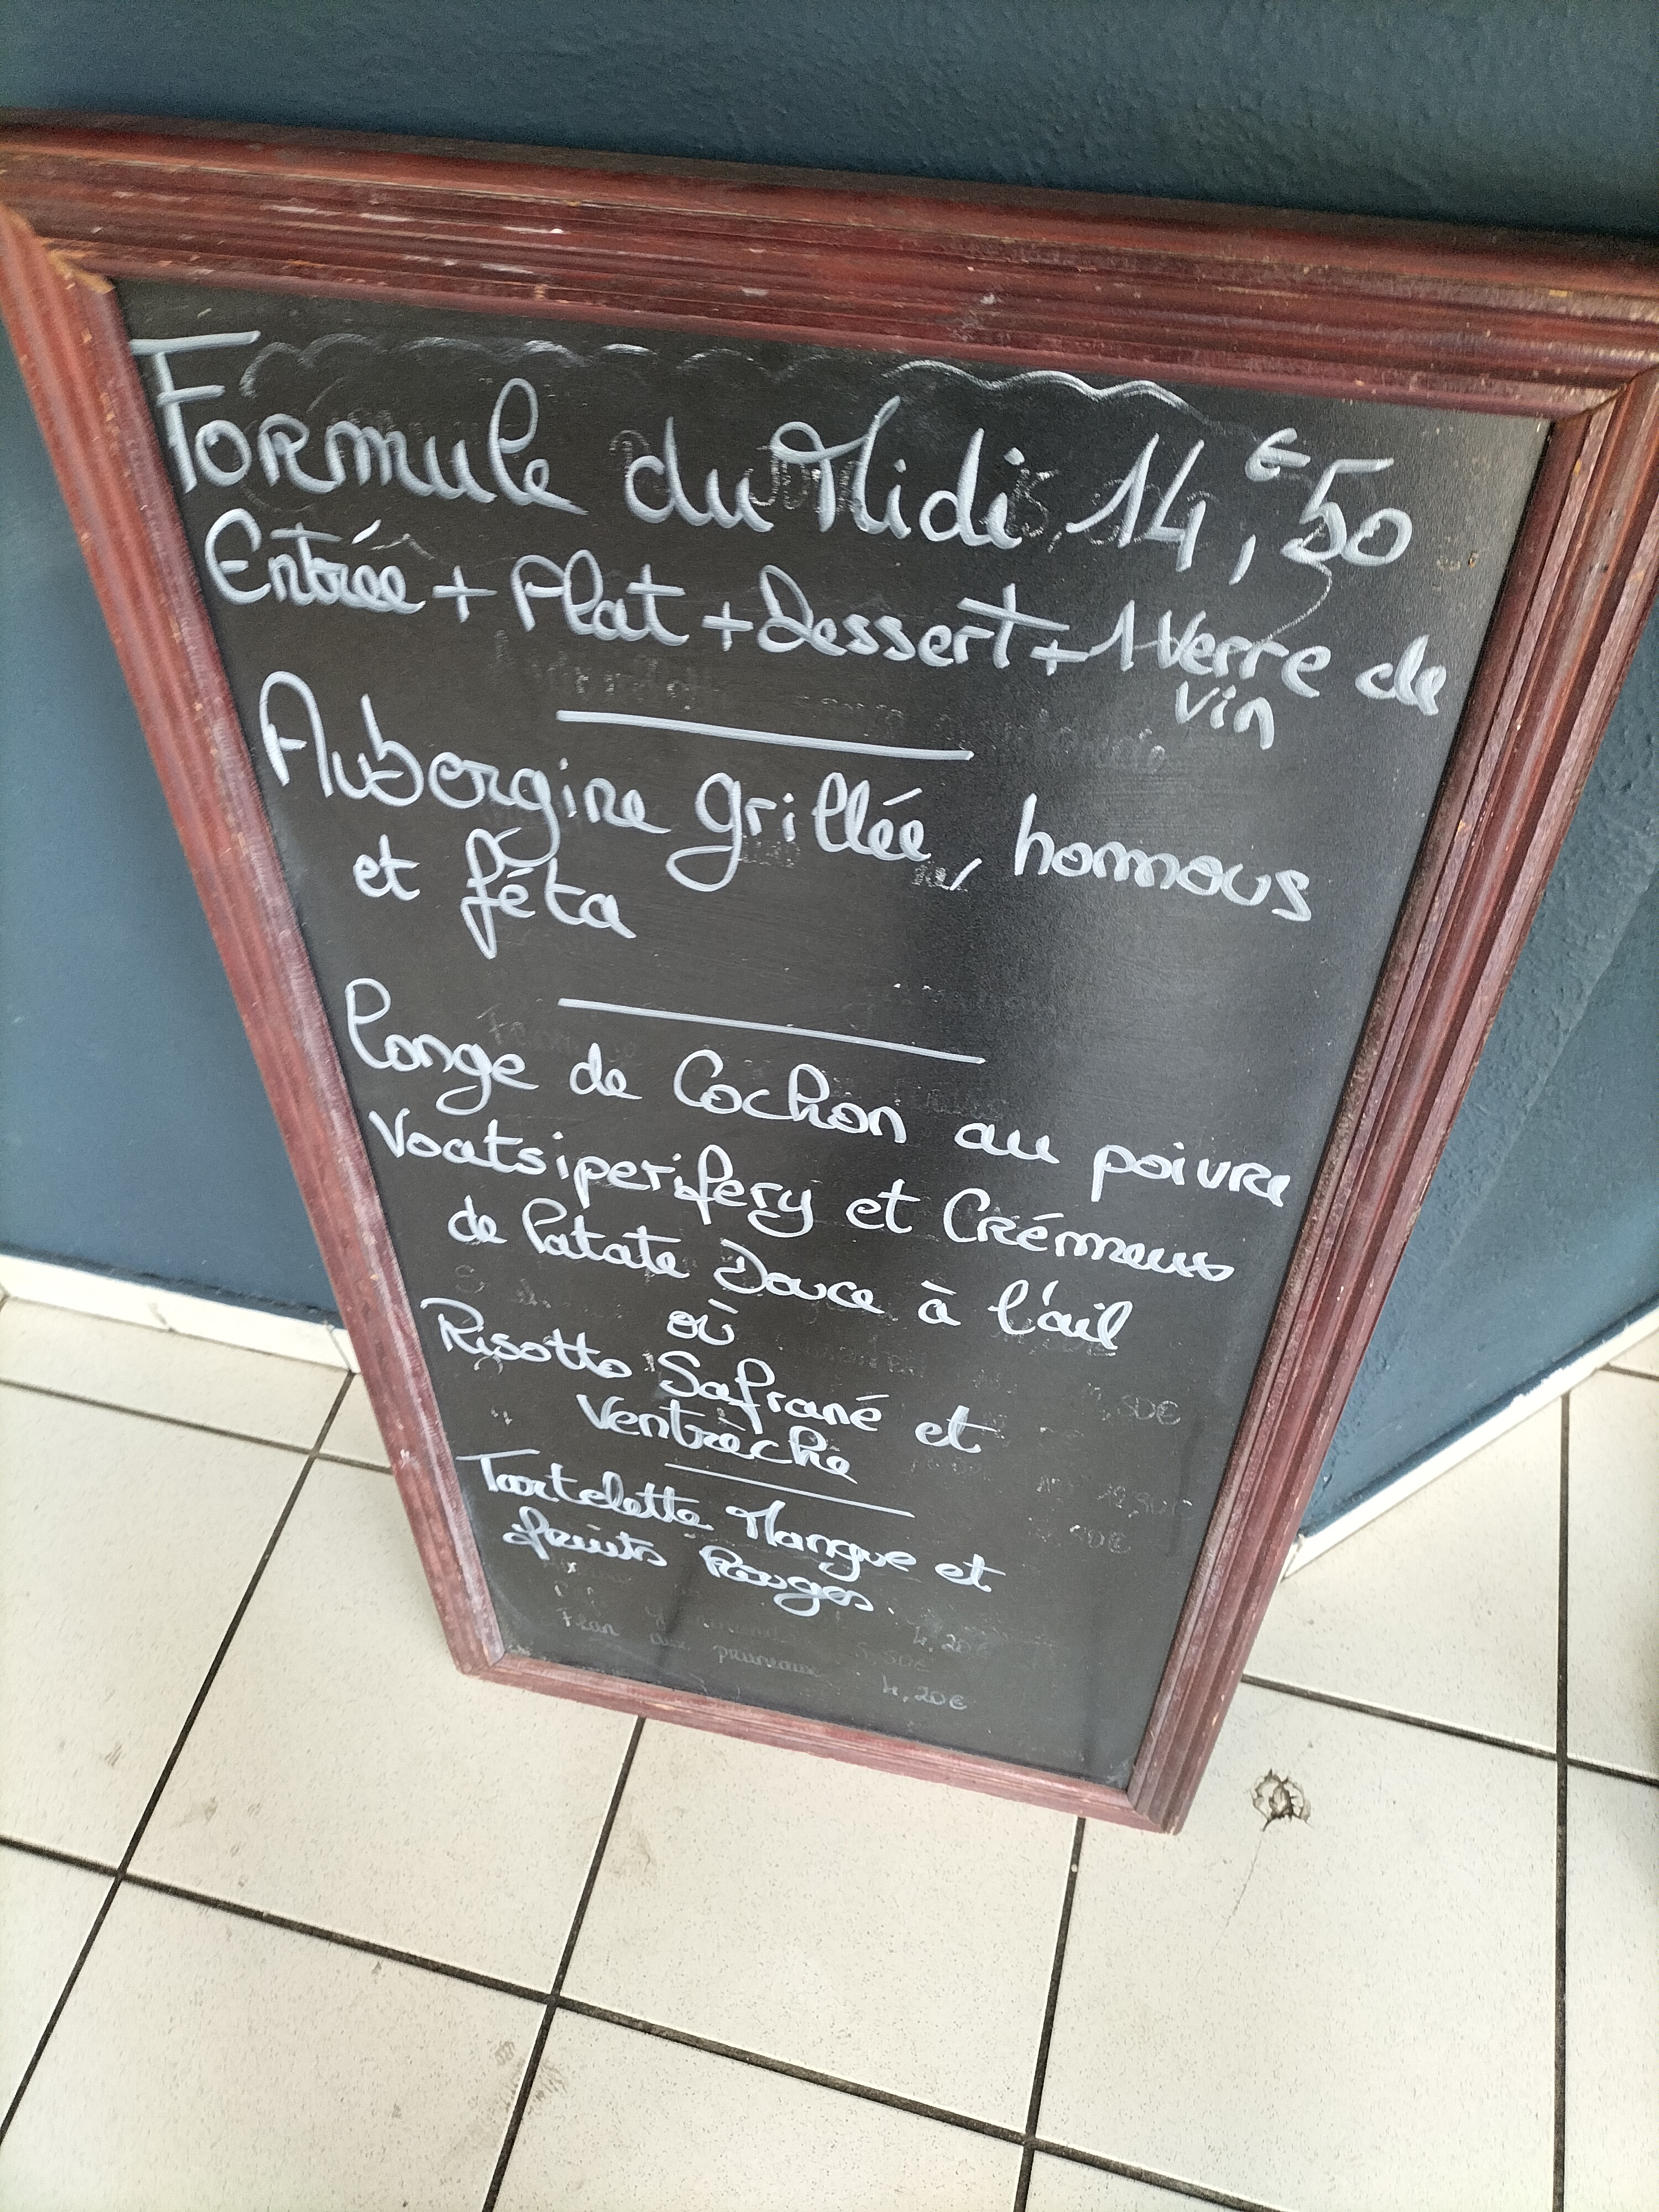 Formule du Midi 14,€50
Entrée + Plat + Dessert + 1 Verre de
vin
Aubergine grillée, homous
et fêta
Longe de Cochon au poivre
Voatsiperifery et Crémeux
de Patate Douce à l'ail
où
Risotto Safrané et
Ventrèche
Tartelette Mangue et
fruits Rouges
4,20€
Flan aux
pruneaux 5,50€
4,20€